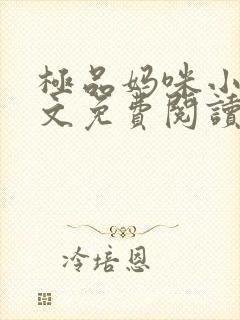 極品妈咪小
文免費閱讀
冷培恩